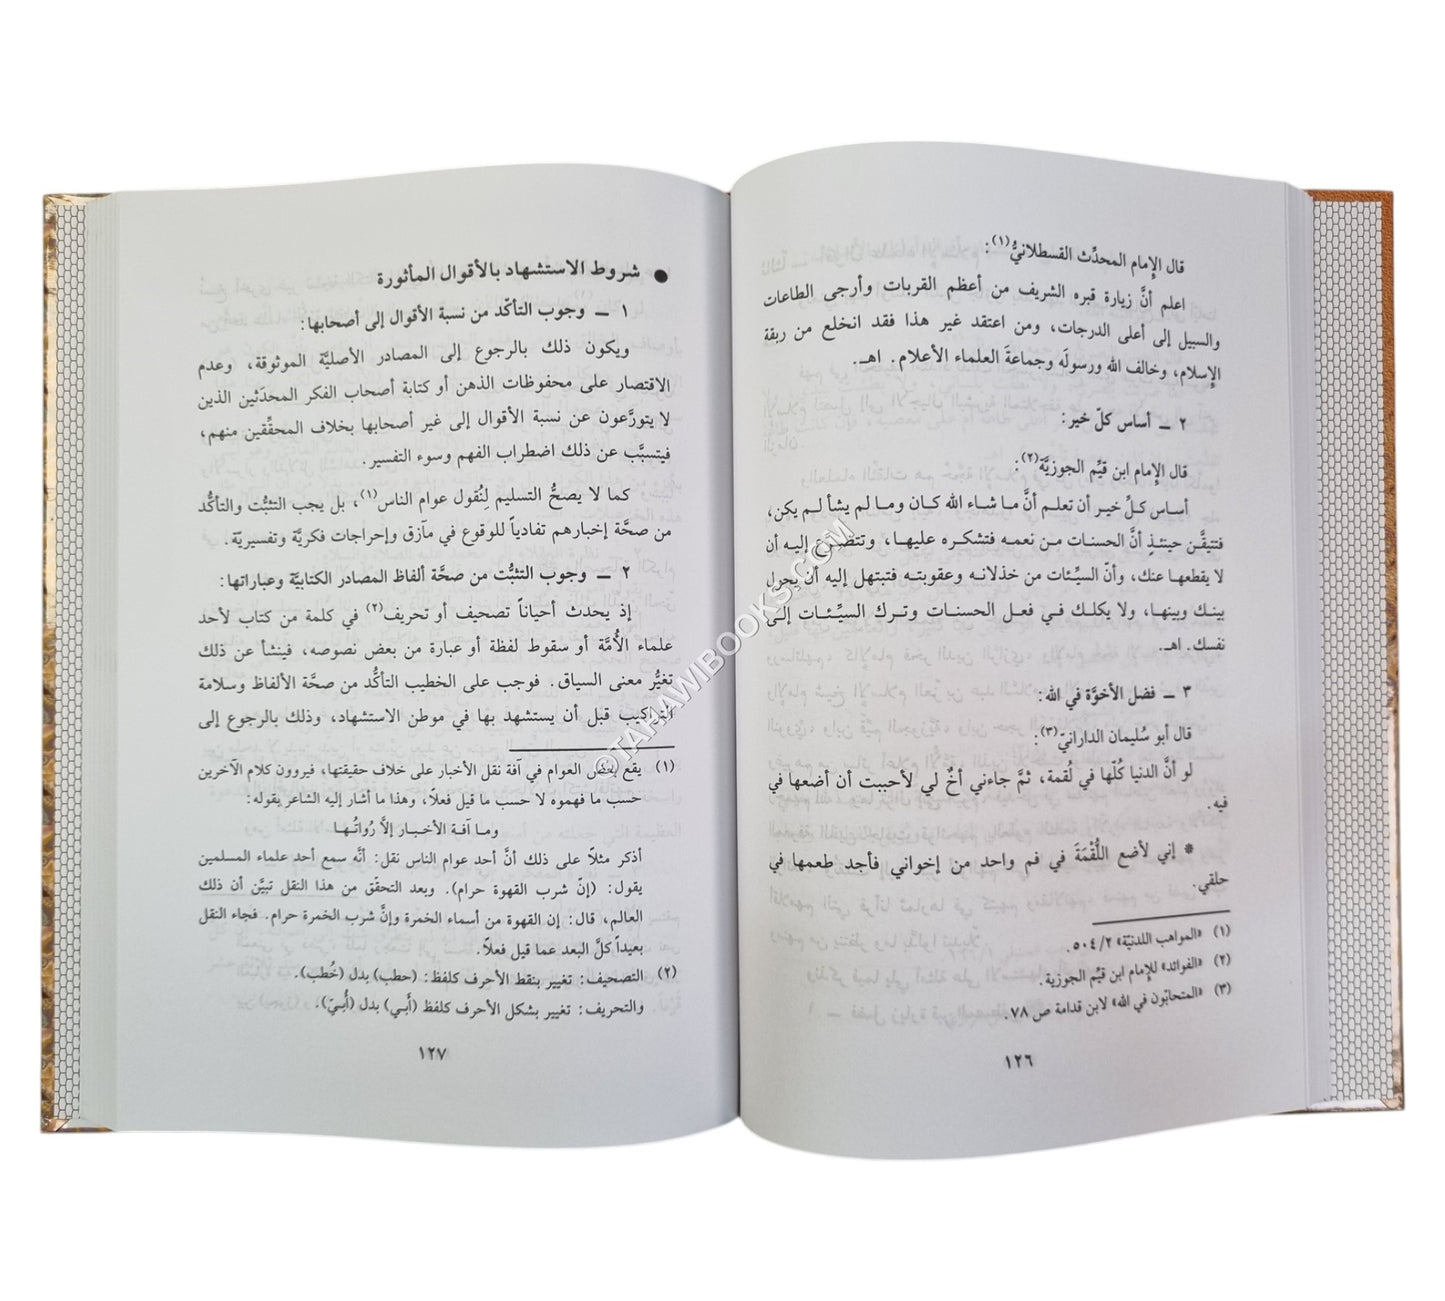 قال الإمام المحدِّث القسطلانيُّ(١):
اعلم أنَّ زيارة قبره الشريف من أعظم القربات وأرجى الطاعات
والسبيل إلى أعلى الدرجات، ومن اعتقد غير هذا فقد انخلع من ربقة
الإسلام، وخالف الله ورسولَه وجماعةَ العلماء الأعلام. اهـ.
٢ ــ أساس كلّ خير:
قال الإمام ابن قيِّم الجوزيَّة(٢):
أساس كلِّ خير أن تعلم أنَّ ما شاء الله كان وما لم يشأ لم يكن،
فتتيقَّن حينئذٍ أنَّ الحسنات من نعمه فتشكره عليها، وتتضرَّع إليه أن
لا يقطعها عنك، وأنّ السيِّئات من خذلانه وعقوبته فتبتهل إليه أن يحول
بينك وبينها، ولا يكلك في فعل الحسنات وترك السيِّئات إلى
نفسك. اهـ.
٣ ــ فضل الأخوَّة في الله:
قال أبو سُليمان الدارانيّ(٣):
لو أنَّ الدنيا كُلّها في لُقمة، ثمَّ جاءني أخٌ لي لأحببت أن أضعها في
فيه.
* إني لأضع اللُّقْمَةَ في فم واحد من إخواني فأجد طعمها في
حلقي.
(١) «المواهب اللدنيّة» ٥٠٤/٢.
(٢) «الفوائد» للإمام ابن قيِّم الجوزية.
(٣) «المتحابّون في الله» لابن قدامة ص ٧٨.
١٢٦
● شروط الاستشهاد بالأقوال المأثورة
١ ــ وجوب التأكّد من نسبة الأقوال إلى أصحابها:
ويكون ذلك بالرجوع إلى المصادر الأصليَّة الموثوقة، وعدم
الاقتصار على محفوظات الذهن أو كتابة أصحاب الفكر المحدَثين الذين
لا يتورَّعون عن نسبة الأقوال إلى غير أصحابها بخلاف المحقِّقين منهم،
فيتسبَّب عن ذلك اضطراب الفهم وسوء التفسير.
كما لا يصحُّ التسليم لِنُقول عوام الناس(١)، بل يجب التثبُّت والتأكُّد
من صحَّة إخبارهم تفادياً للوقوع في مآزق وإحراجات فكريَّة وتفسيريَّة.
٢ ــ وجوب التثبُّت من صحَّة ألفاظ المصادر الكتابيَّة وعباراتها:
إذ يحدث أحياناً تصحيف أو تحريف(٢) في كلمة من كتاب لأحد
علماء الأُمَّة أو سقوط لفظة أو عبارة من بعض نصوصه، فينشأ عن ذلك
تغيُّر معنى السياق. فوجب على الخطيب التأكُّد من صحَّة الألفاظ وسلامة
التراكيب قبل أن يستشهد بها في موطن الاستشهاد، وذلك بالرجوع إلى
(١) يقع بعض العوام في آفة نقل الأخبار على خلاف حقيقتها، فيروون كلام الآخرين
حسب ما فهموه لا حسب ما قيل فعلاً، وهذا ما أشار إليه الشاعر بقوله:
وما آفـة الأخبـار إلاَّ رُواتُـهـا
أذكر مثلاً على ذلك أنَّ أحد عوام الناس نقل: أنَّه سمع أحد علماء المسلمين
يقول: (إنّ شرب القهوة حرام). وبعد التحقّق من هذا النقل تبيَّن أن ذلك
العالم، قال: إن القهوة من أسماء الخمرة وإنَّ شرب الخمرة حرام. فجاء النقل
بعيداً كلَّ البعد عما قيل فعلاً.
(٢) التصحيف: تغيير بنقط الأحرف كلفظ: (حطب) بدل (خُطب).
والتحريف: تغيير بشكل الأحرف كلفظ (أَبي) بدل (أُبيّ).
١٢٧
©TAHAWIBOOKS.COM